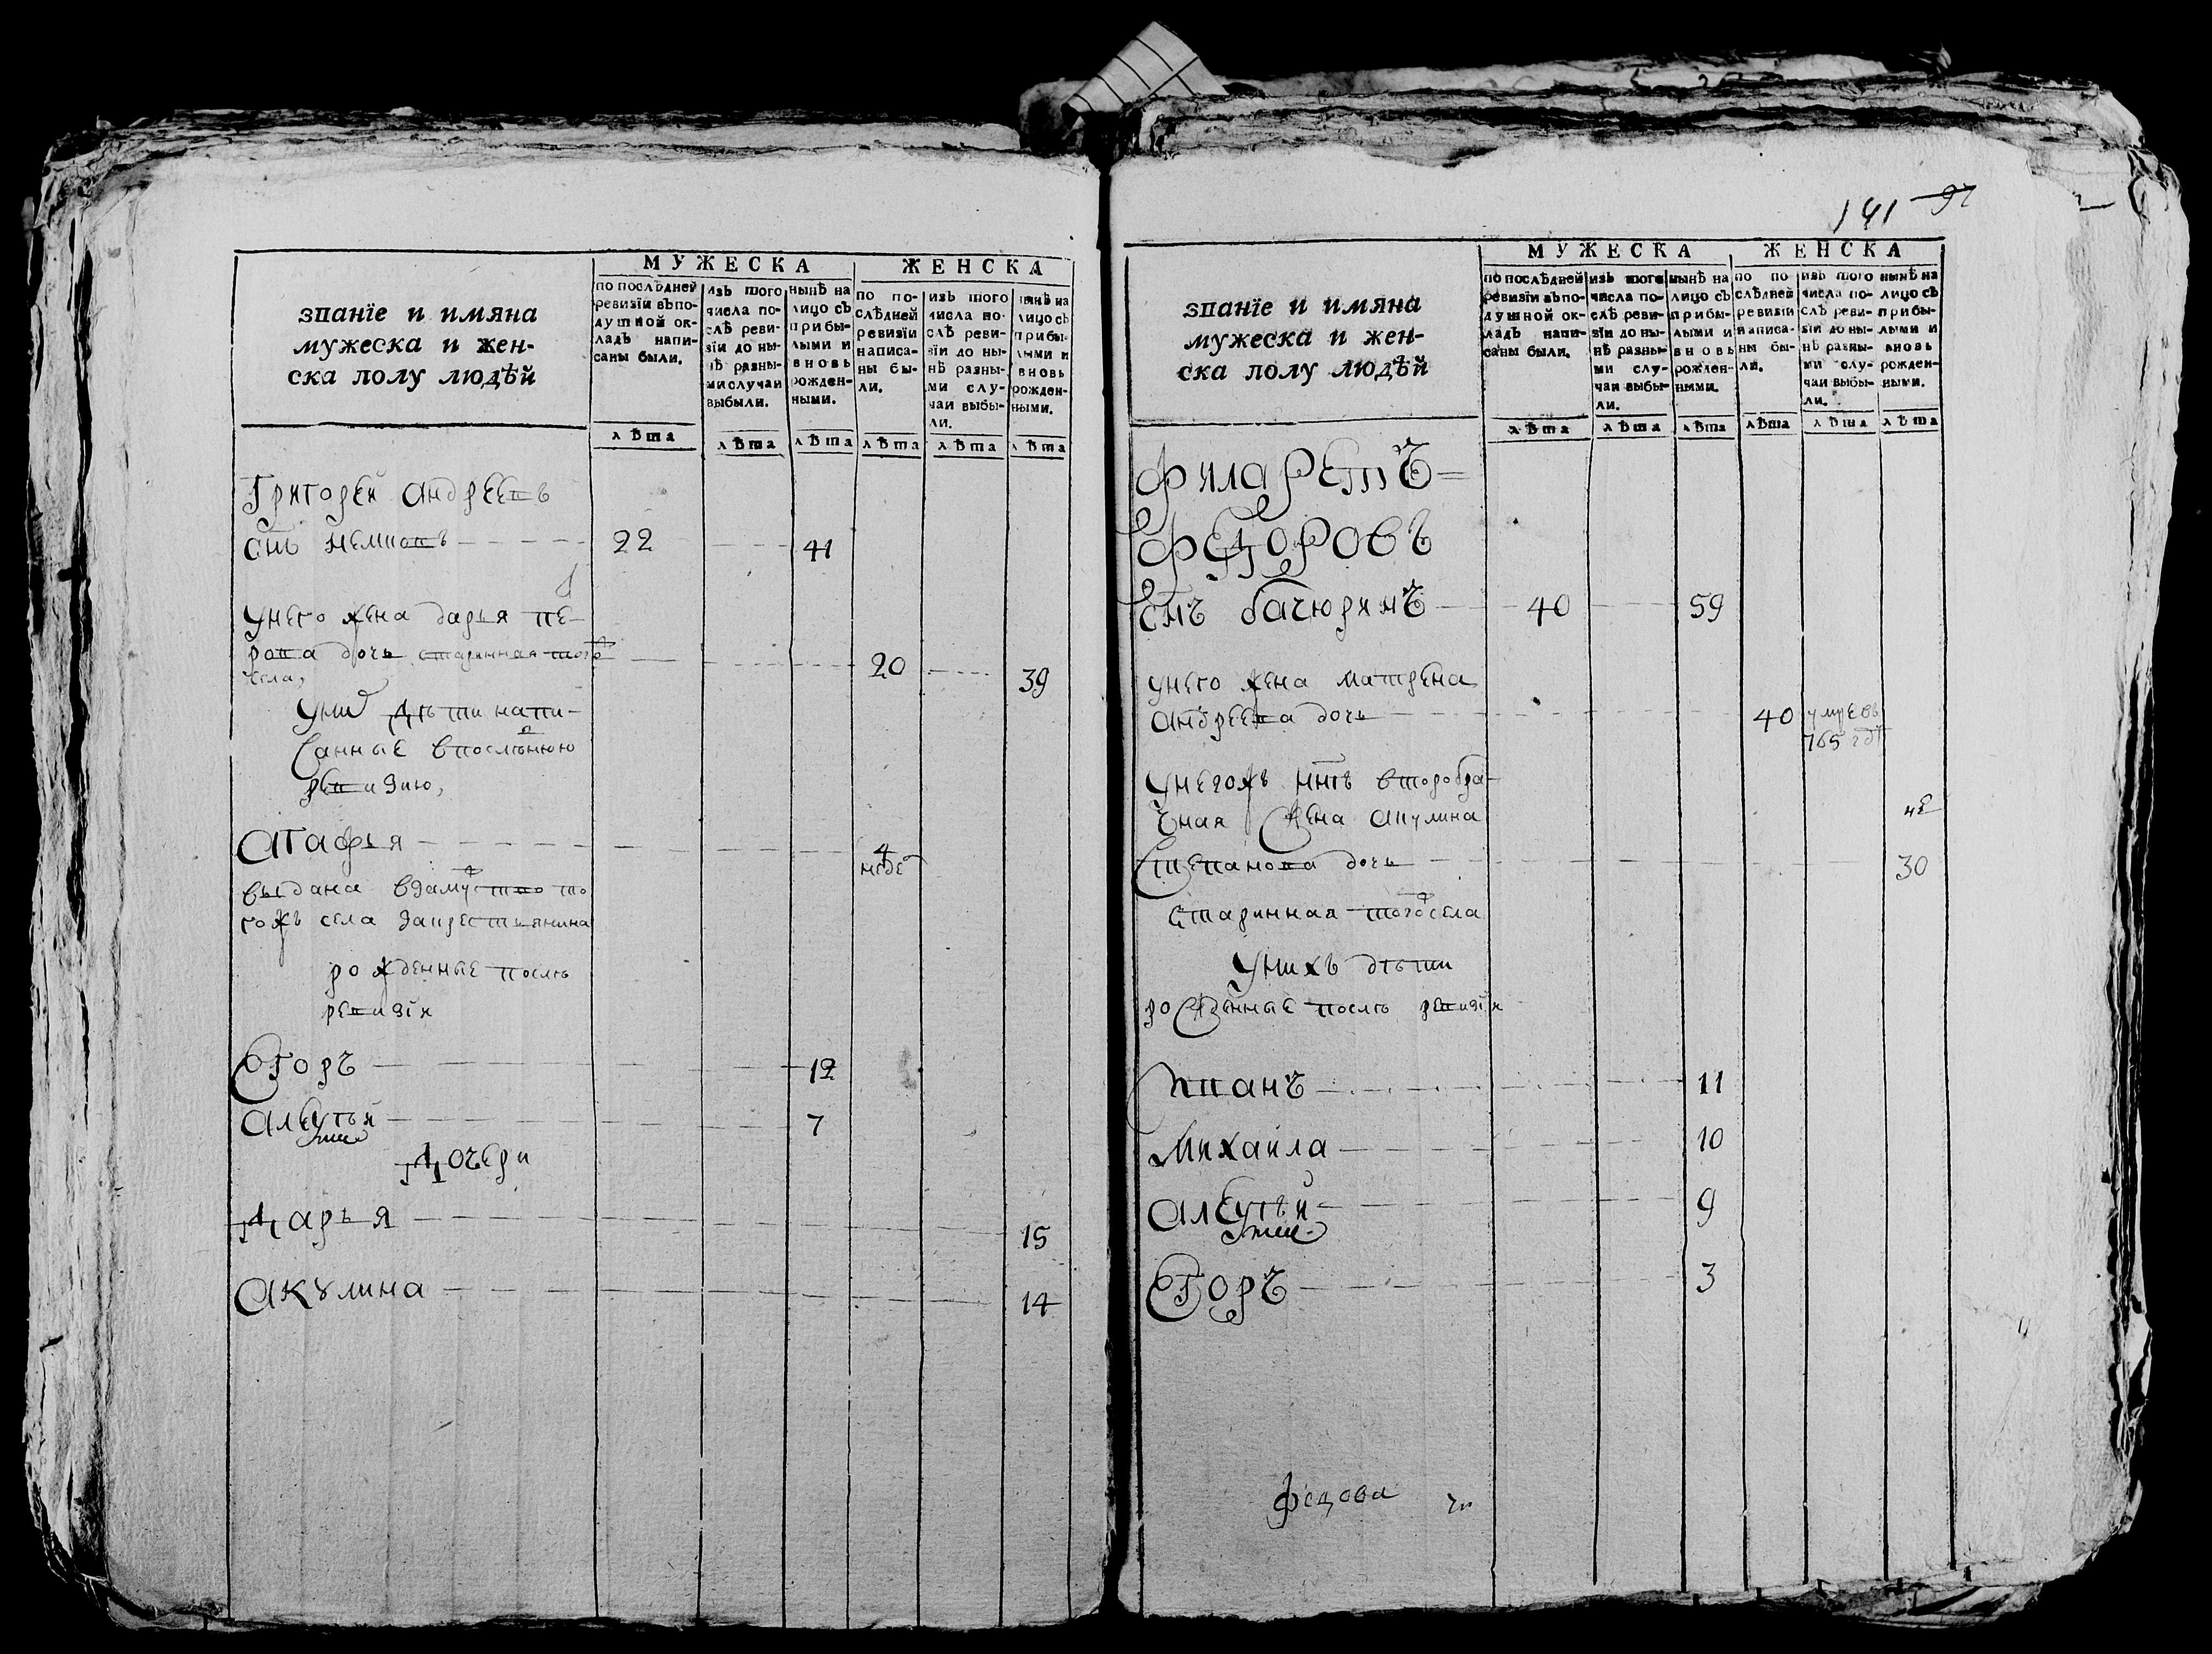 званїе и имяна
мужеска и жен-
ска полу людѣй
МУЖЕСКА
ЖЕНСКА
по послѣдней
ревизїи въ по-
душной ок-
ладъ напи-
саны были.
изъ того
числа по-
слѣ реви-
зїи до ны-
нѣ разны-
ми случаи
выбыли.
нынѣ на
лицо съ
прибы-
лыми и
вновь
рожден-
ными.
по по-
слѣдней
ревизїи
написа-
ны бы-
ли.
изъ того
числа по-
слѣ реви-
зїи до ны-
нѣ разны-
ми слу-
чаи выбы-
ли.
нынѣ на
лицо съ
прибы-
лыми и
вновь
рожден-
ными.
лѣта лѣта лѣта лѣта лѣта лѣта
Григорей Андреевъ
снъ 22 41
унего жена дарья пе-
рова дочь старинная тогож 20 39
села,
уних дѣти напи-
санные впослѣднюю
ревизию,
Агафья 4
выдана взамуство то
гожъ села закрестьянина
рожденные послѣ
ревизїи
Егоръ 12
Алексѣй 7
Дочери
Дарья 15
Акулина 14
141 97
званїе и имяна
мужеска и жен-
ска полу людѣй
МУЖЕСКА
ЖЕНСКА
по послѣдней
ревизїи въ по-
душной ок-
ладъ напи-
саны были.
изъ того
числа по-
слѣ реви-
зїи до ны-
нѣ разны-
ми слу-
чаи выбы-
ли.
нынѣ на
лицо съ
прибы-
лыми и
вновь
рожден-
ными.
по по-
слѣдней
ревизїи
написа-
ны бы-
ли.
изъ того
числа по-
слѣ реви-
зїи до ны-
нѣ разны-
ми слу-
чаи выбы-
ли.
нынѣ на
лицо съ
прибы-
лыми и
вновь
рожден-
ными.
лѣта лѣта лѣта лѣта лѣта лѣта
Филаретъ
Федоровъ
снъ бачюринъ 40 59
унего жена матрена
андреева дочь 40 умре въ
765 гд
унегожъ ннѣ второбра-
чная жена акулина
степанова дочь 30
старинная тогож села
унихъ дѣти
рожденные послѣ ревизїи
Иванъ 11
Михаила 10
Алексѣй 9
Егоръ 3